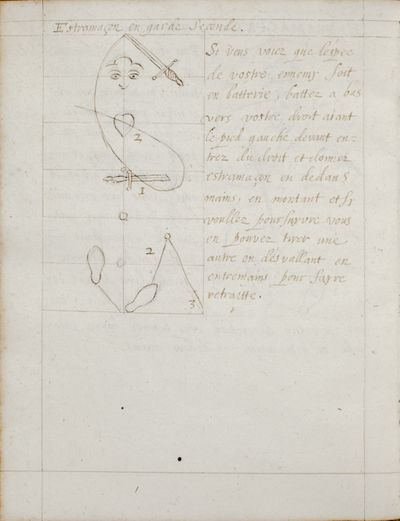 Estramaçon en garde seconde.
Si vous voiez que l'espee
de vostre ennemy soit
en batterie, battez a bas
vers vostre droit aiant
le pied gauche devant en-
trez du droit et donnez
estramaçon en dedans
mains, en montant et sy
voullez poursuyvre vous
en pouvez tirer une
autre en désvallant en
entremains pour fayre
retraitte.
2
1
2
3